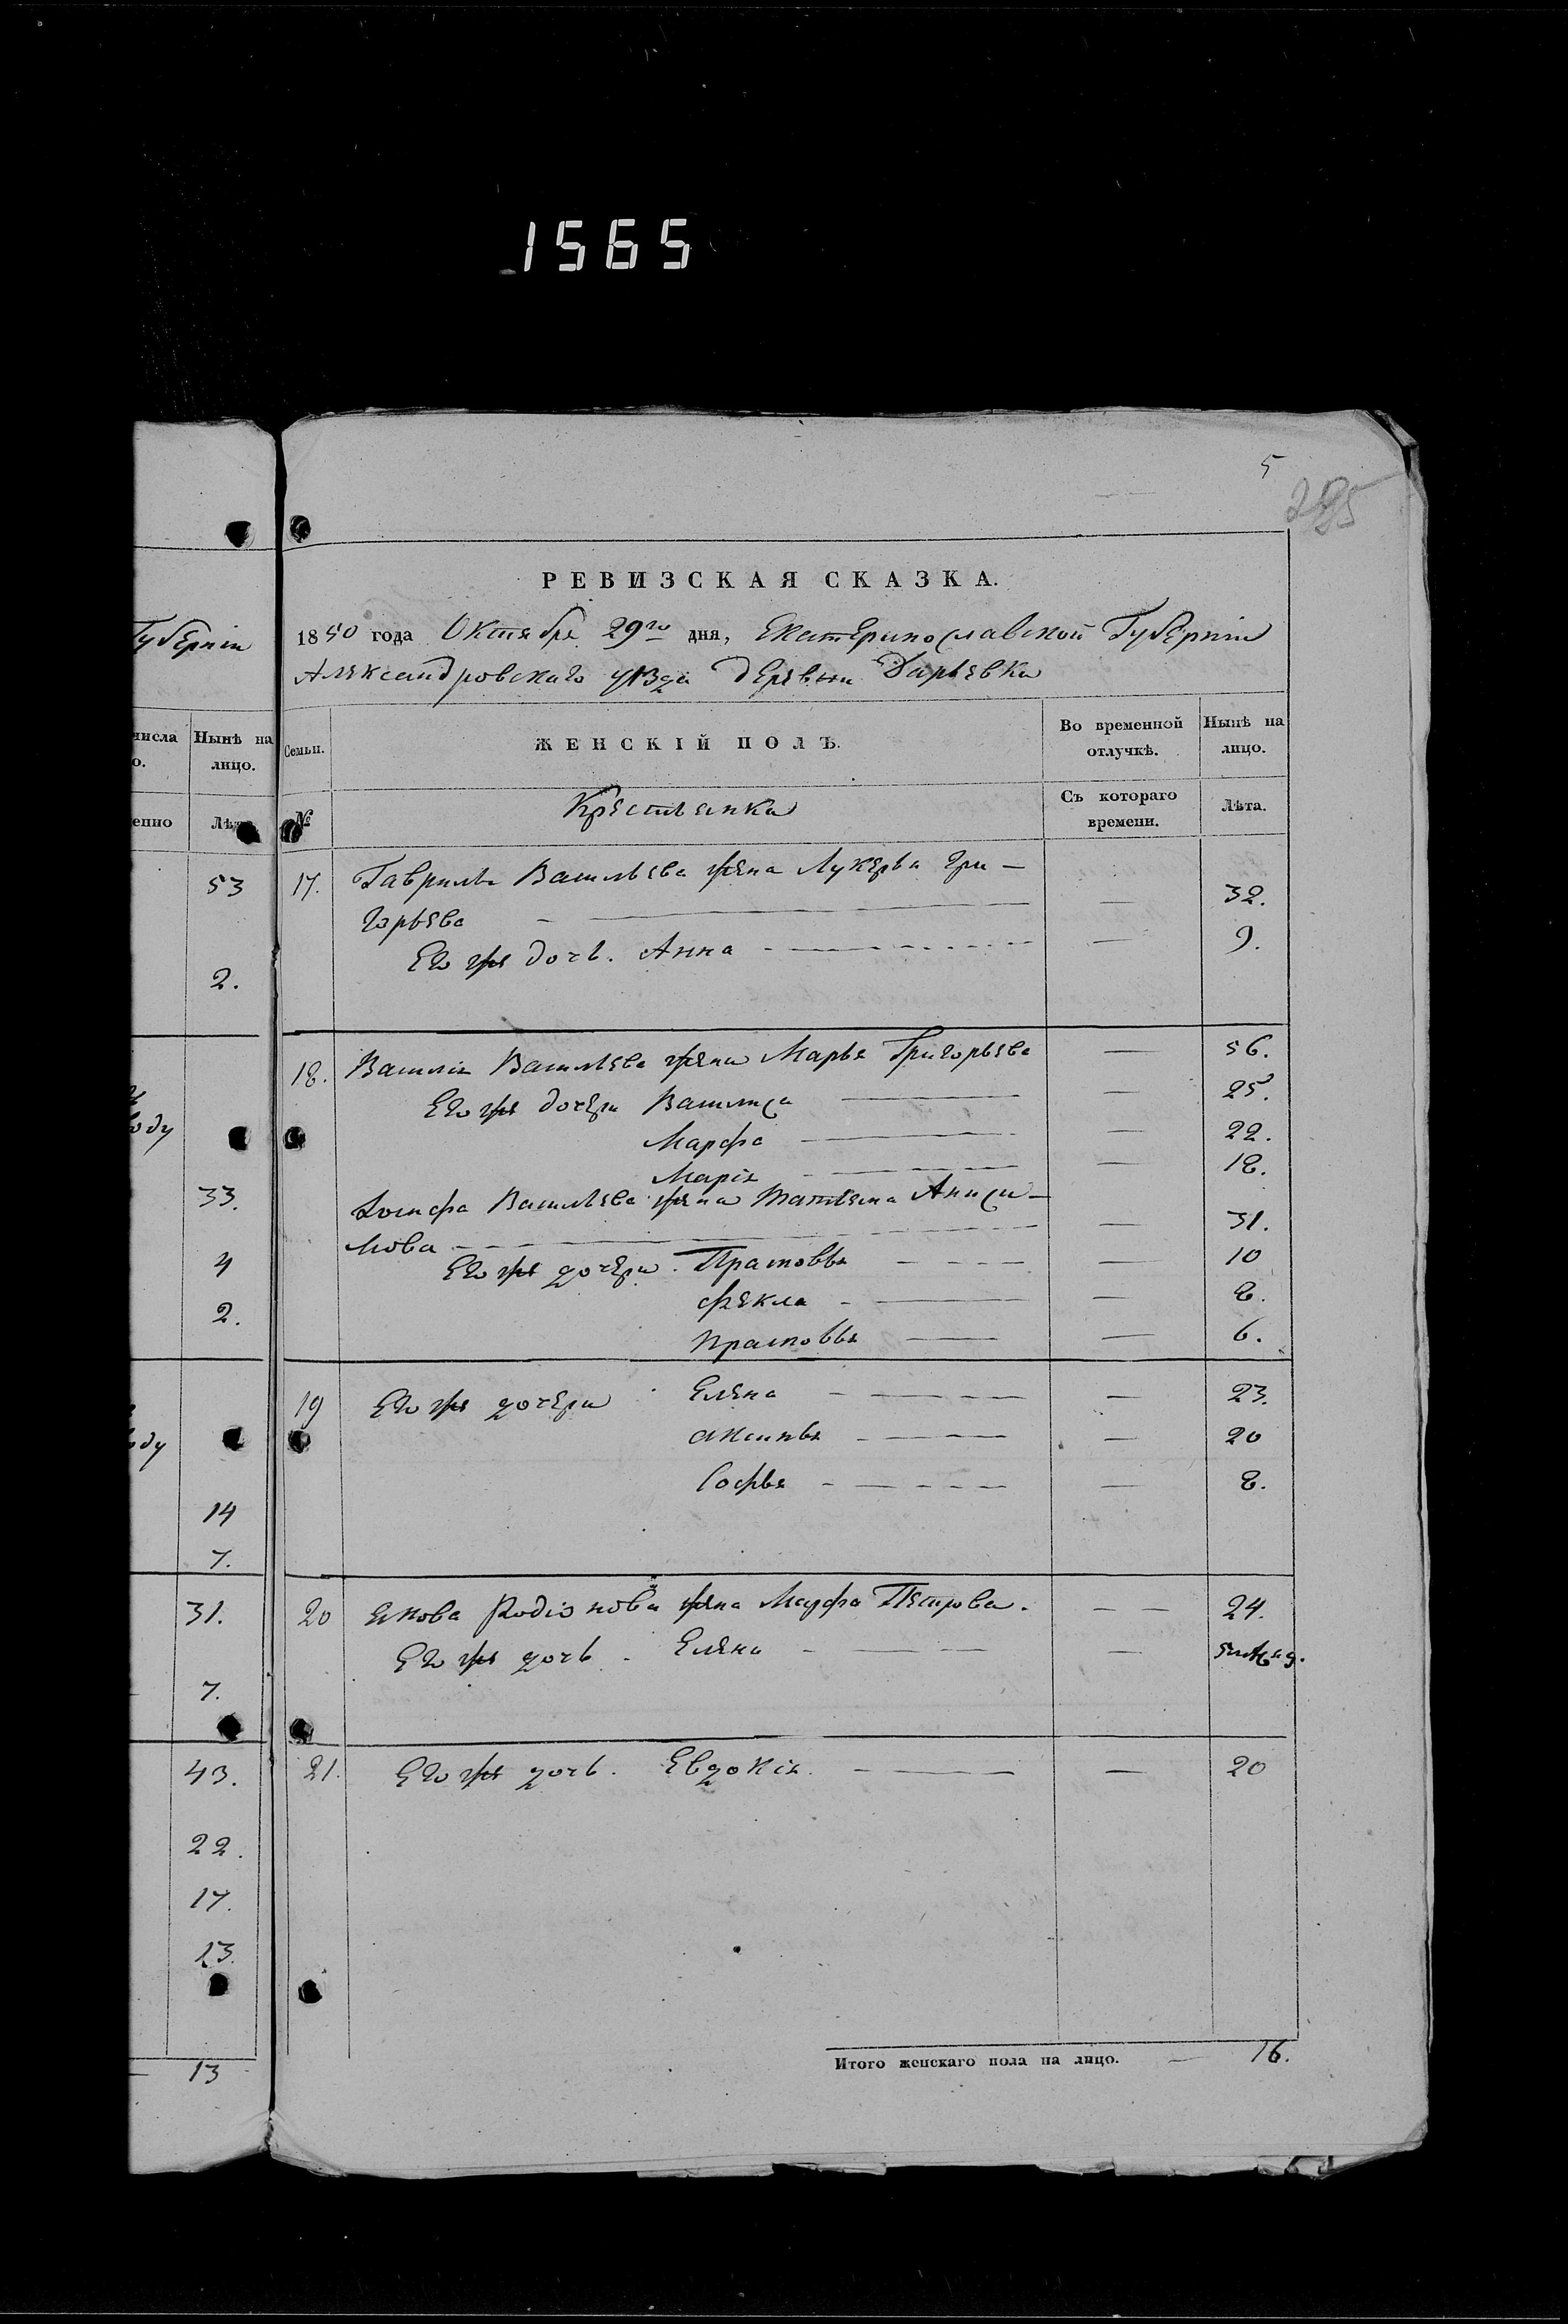 1565
5
295
РЕВИЗСКАЯ СКАЗКА.
Губерніи
1850 года Октября 29го дня, Екатеринославской Губерніи
Александровскаго уѣзда деревни Дарьевки
числа
о.
Нынѣ на
лицо.
Семьи.
ЖЕНСКІЙ ПОЛЪ.
Во временной
отлучкѣ.
Нынѣ на
лицо.
енно
Лѣта
№
Крестьянка
Съ котораго
времени.
Лѣта.
53
17. Гаврилы Васильева жена Лукерья Гри-
горьева — 32.
Его же дочь. Анна — 9.
2.
18. Василія Васильева жена Марья Григорьева — 56.
Его же дочери Василиса — 25.
оду
Марфа — 22.
Марія — 18.
33.
Іосифа Васильева жена Татьяна Аниси-
мова — 31.
4
Его же дочери. Прасковья — 10
2.
Фекла — 8.
Прасковья — 6.
19 Его же дочери Елена — 23.
оду
Аксинья — 20
Софья — 8.
14
7.
31.
20 Якова Родіонова жена Марфа Петрова. — 24.
Его же дочь. Елена —
7.
43.
21. Его же дочь. Евдокія. — 20
22.
17.
13.
13
Итого женскаго пола на лицо. — 16.